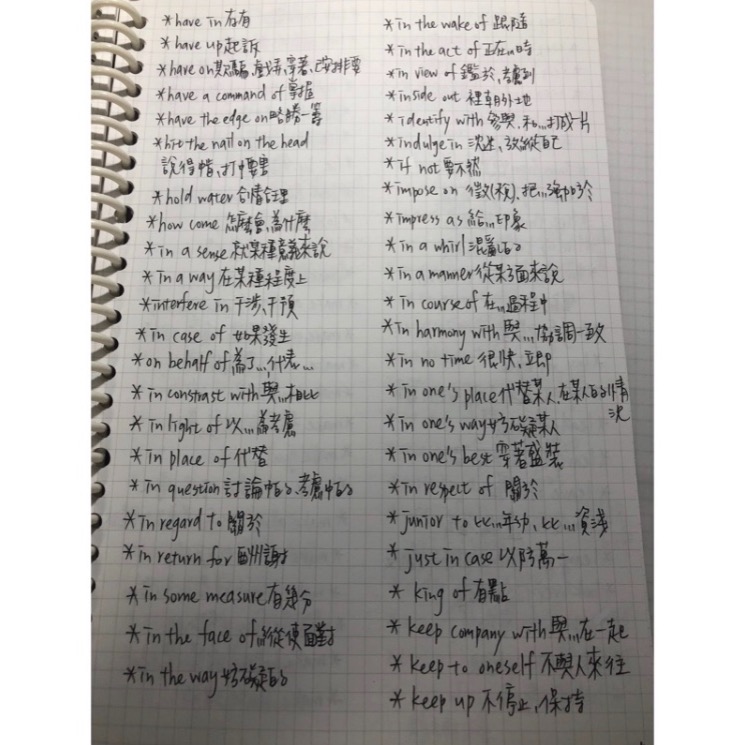 *have in 存有
*have up 起訴
*have on 欺騙、戲弄、穿著、安排要
*have a command of 掌握
*have the edge on 略勝一籌
*hit the nail on the head
說得中肯、打中要害
*hold water 合情合理
*how come 怎麼會、為什麼
*in a sense 就某種意義來說
*in a way 在某種程度上
*interfere in 干涉、干預
*in case of 如果發生
*on behalf of 為了…、代表…
*in constrast with 與…相比
*in light of 以…為考慮
*in place of 代替
*in question 討論中的、考慮中的
*in regard to 關於
*in return for 酬謝
*in some measure 有幾分
*in the face of 縱使面對
*in the way 妨礙的
*in the wake of 跟隨
*in the act of 正在…時
*in view of 鑑於、考慮到
*inside out 裡朝外地
*identify with 參與、和…打成一片
*indulge in 沈迷、放縱自己
*if not 要不然
*impose on 徵(稅)、把…強加於
*impress as 給…印象
*in a whirl 混亂的
*in a manner 從某方面來說
*in course of 在…過程中
*in harmony with 與…協調一致
*in no time 很快、立即
*in one's place 代替某人、在某人的情
況
*in one's way 妨礙某人
*in one's best 穿著盛裝
*in respect of 關於
*junior to 比…年幼、比…資淺
*just in case 以防萬一
*king of 有點
*keep company with 與…在一起
*keep to oneself 不與人來往
*keep up 不停止、保持